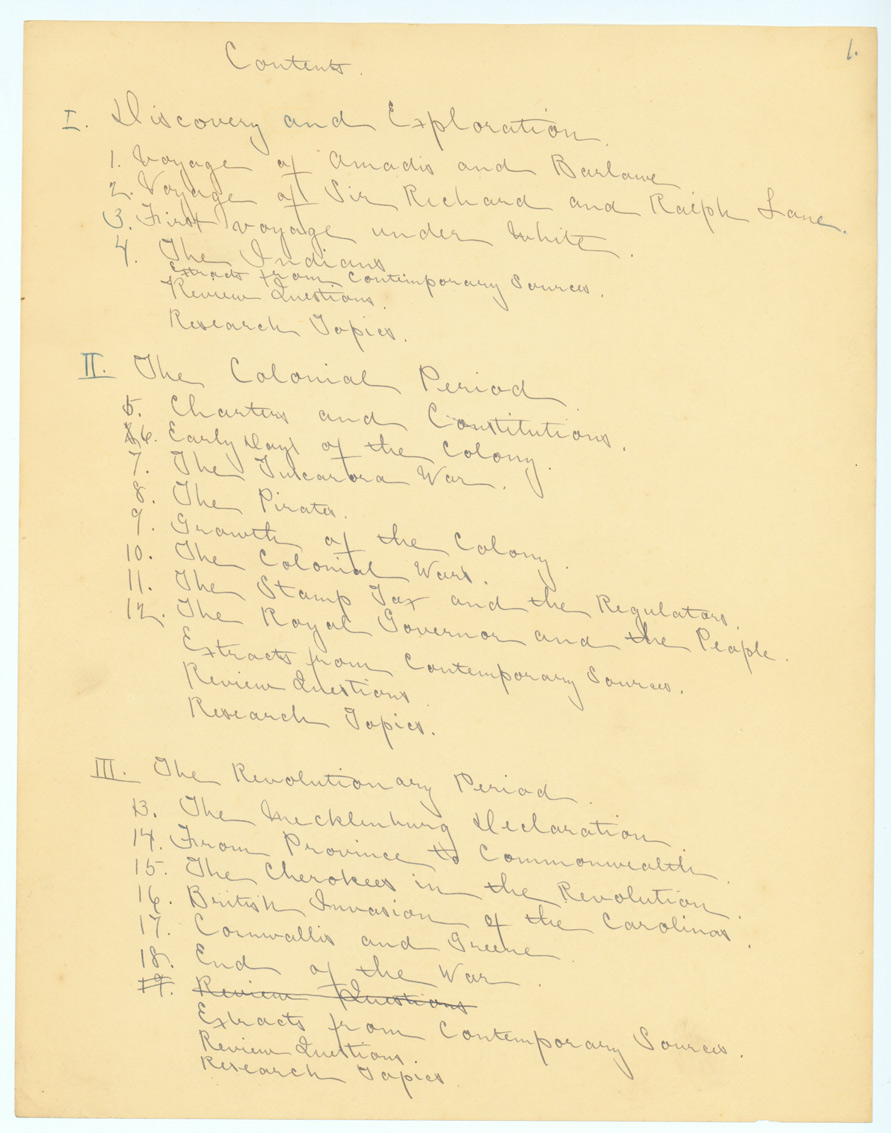 1.
Contents.
I. Discovery and Exploration.
1. Voyage of Amadis and Barlowe
2. Voyage of Sir Richard and Ralph Lane.
3. First voyage under White.
4. The Indians
Extracts from Contemporary Sources.
Review Questions.
Research Topics.
II. The Colonial Period
5. Charters and Constitutions.
6. Early Days of the Colony.
7. The Tuscarora War.
8. The Pirates.
9. Growth of the Colony.
10. The Colonial Wars.
11. The Stamp Tax and the Regulators.
12. The Royal Governor and the People.
Extracts from Contemporary Sources.
Review Questions
Research Topics.
III. The Revolutionary Period.
13. The Mecklenburg Declaration
14. From Province to Commonwealth.
15. The Cherokees in the Revolution.
16. British Invasion of the Carolinas.
17. Cornwallis and Greene
18. End of the War.
19. Review Questions
Extracts from Contemporary Sources.
Review Questions.
Research Topics.